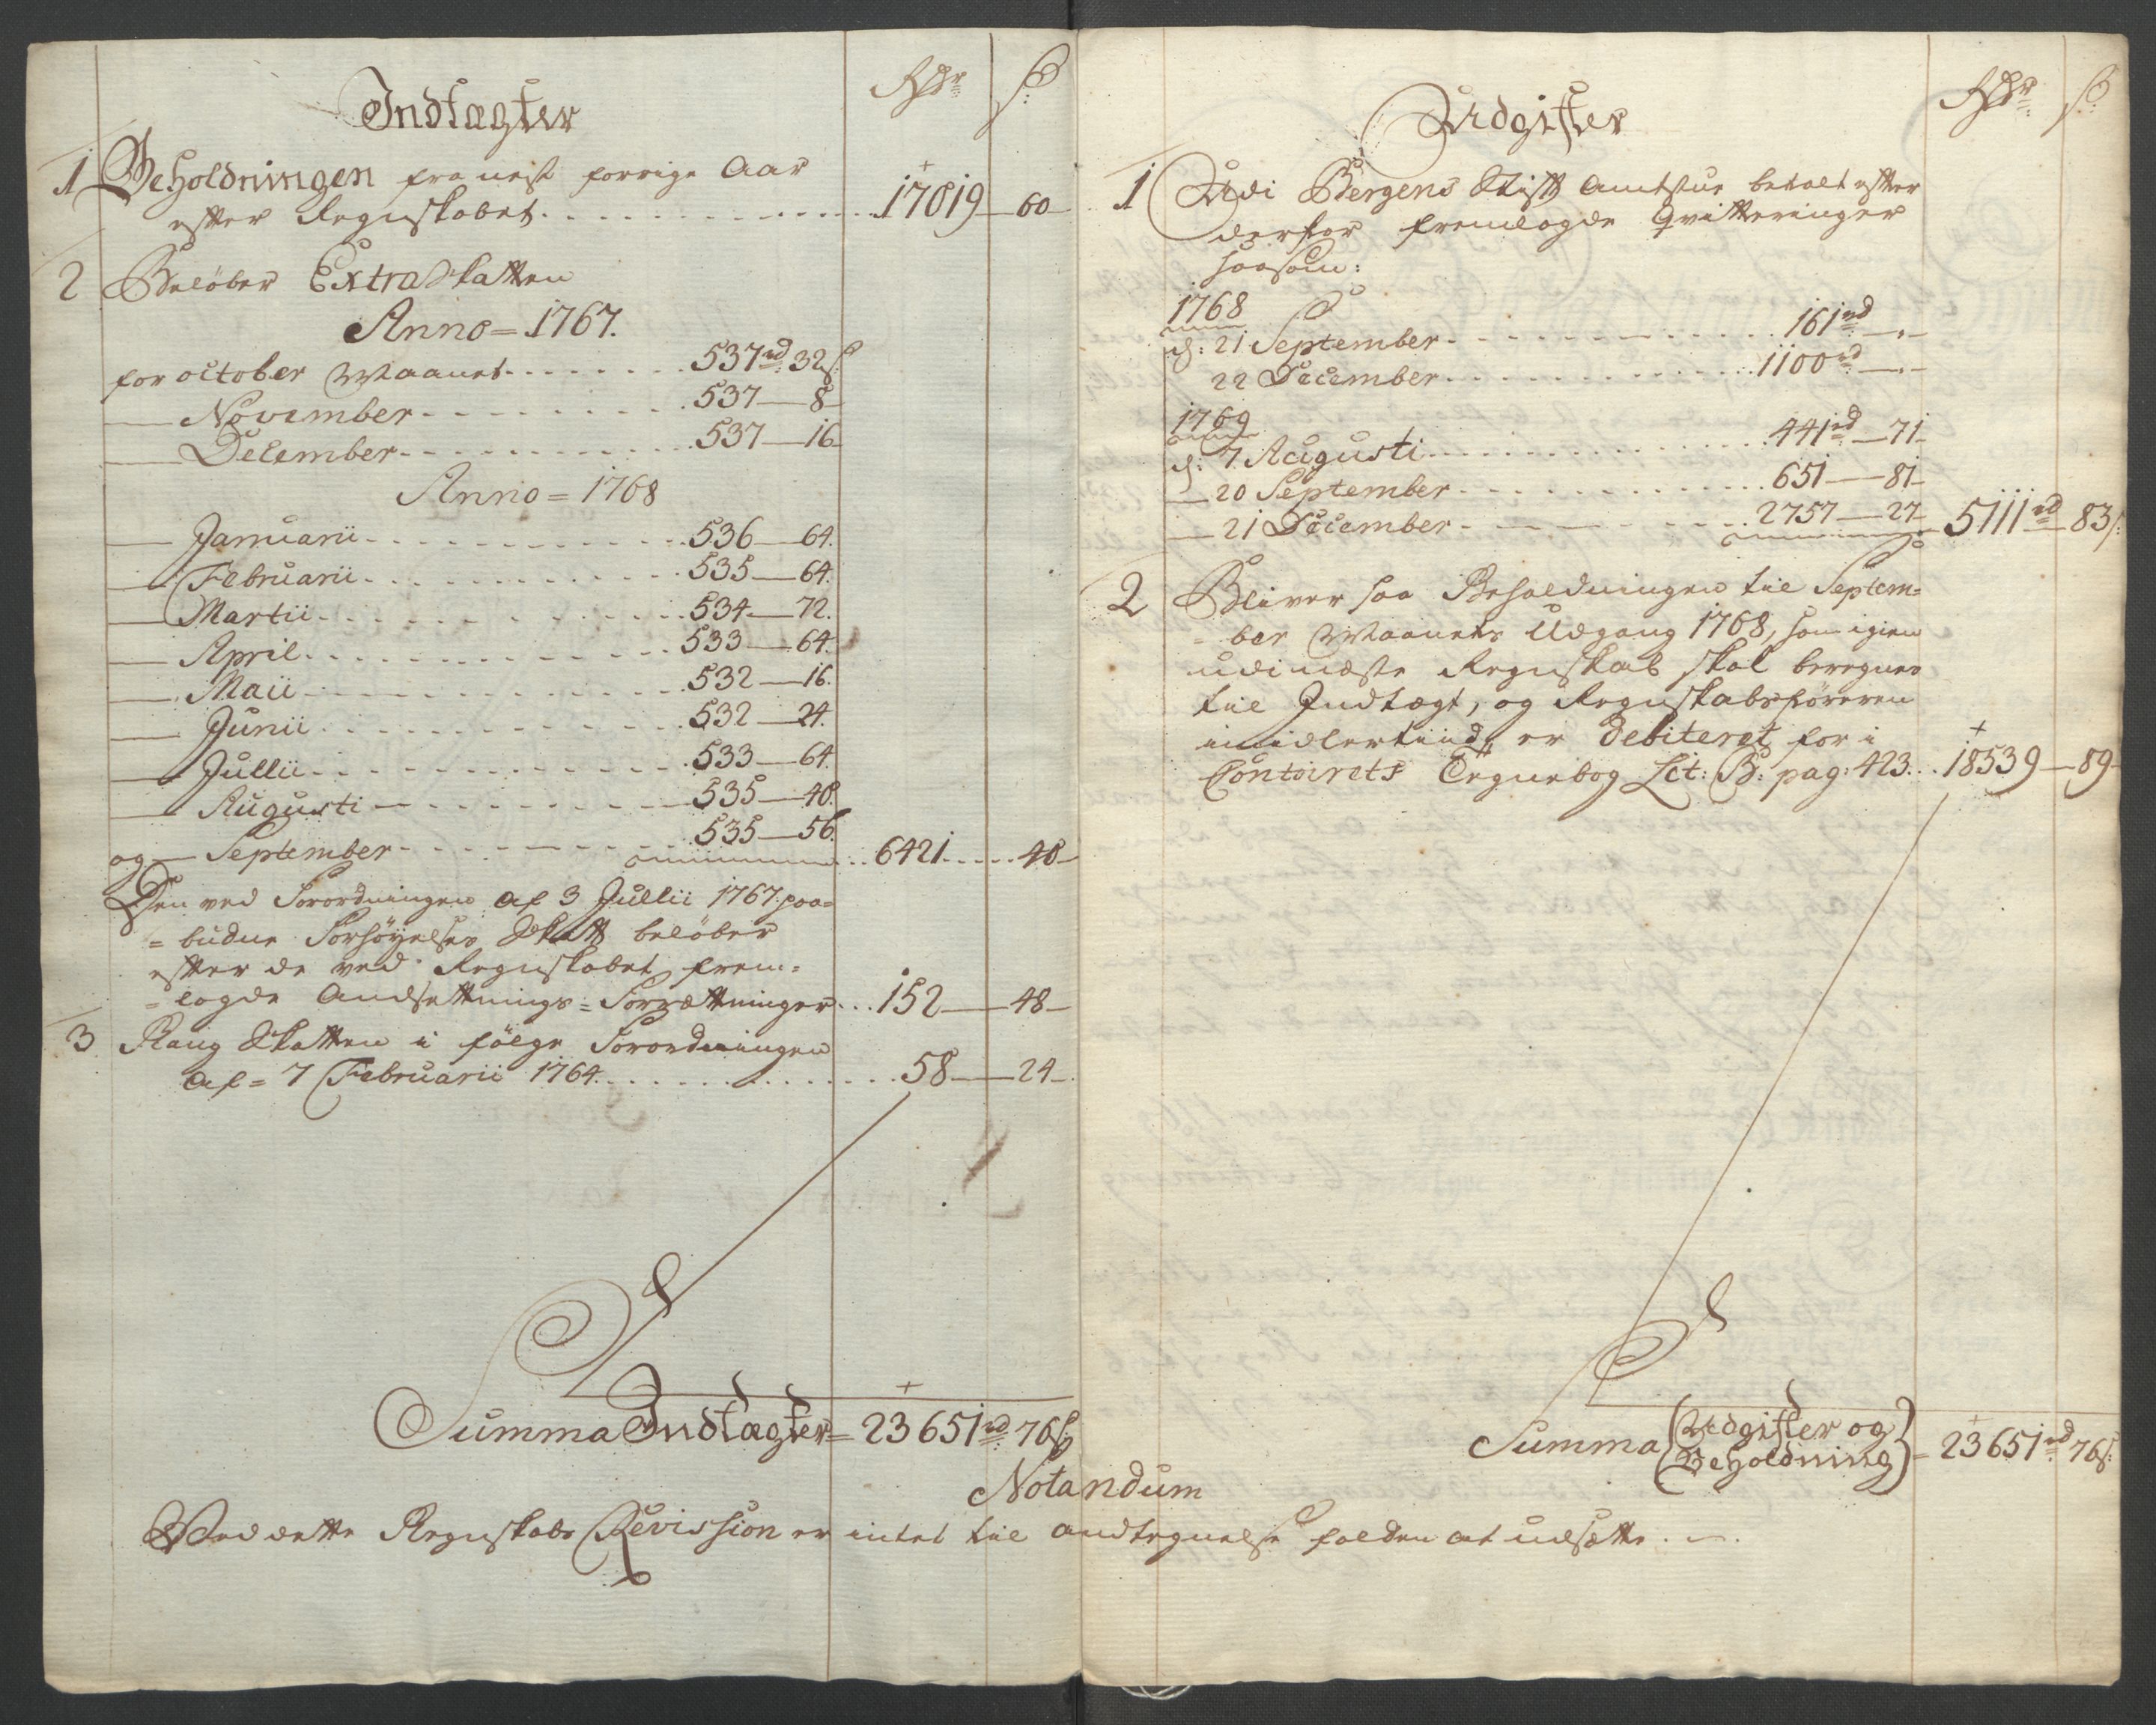 Indtægter
Rdr ß
1 Beholdningen fra nest forrige Aar
efter Regnskabet . . . 17019 — 60 —
2 Beløber Extra Skatten
Anno = 1767.
for october Maanet . . . 537 rd 32 ß
— November . . . 537 — 8
— December . . . 537 — 16
Anno = 1768
— Januarii . . . 536 — 64.
— Februarii . . . 535 — 64.
— Martii . . . 534 — 72.
— April . . . 533 — 64.
— Maii . . . 532 — 16.
— Junii . . . 532 — 24.
— Jullii . . . 533 — 64.
— Augusti . . . 535 — 40.
og — September . . . 535 — 56. . . 6421 . . . 40 —
Den ved Forordningen af 3 Jullii 1767. paa=
=budne Forhöyelses Skatt beløber
efter de ved Regnskabet frem=
=lagde Andsettnings=Forrættninger . . 152 — 48 —
3 Rang Skatten i følge Forordningen
af = 7 Februarii 1764. . . . 58 — 24 —
Summa Indtægter = 23651 rd 76 ß
Udgifter
Rdr ß
1 Udi Bergens Stift Amtstue betalt efter
derfor fremlagde Qvitteringer
saasom:
1768
d: 21 September . . . 161 rd — „ —
22 December . . . 1100 rd — „ —
1769
d: 7 Augusti . . . 441 rd — 71 —
— 20 September . . . 651 — 81 —
— 21 December . . . 2757 — 27 — 5111 rd — 83 ß
2 Bliver saa Beholdningen til Septem=
=ber Maanets Udgang 1768, som igien
udi næste Regnskab skal beregnes
til Indtægt, og Regnskabsføreren
imidlertiid er debiteret for i
Contoirets Ergnebog Lit: B: pag: 423. . . 18539 — 89 —
Summa (Udgifter og
Beholdning) = 23651 rd 76 ß
Notandum
Ved dette Regnskabs Revission er intet til Andtegnelse falden at udsætte. —